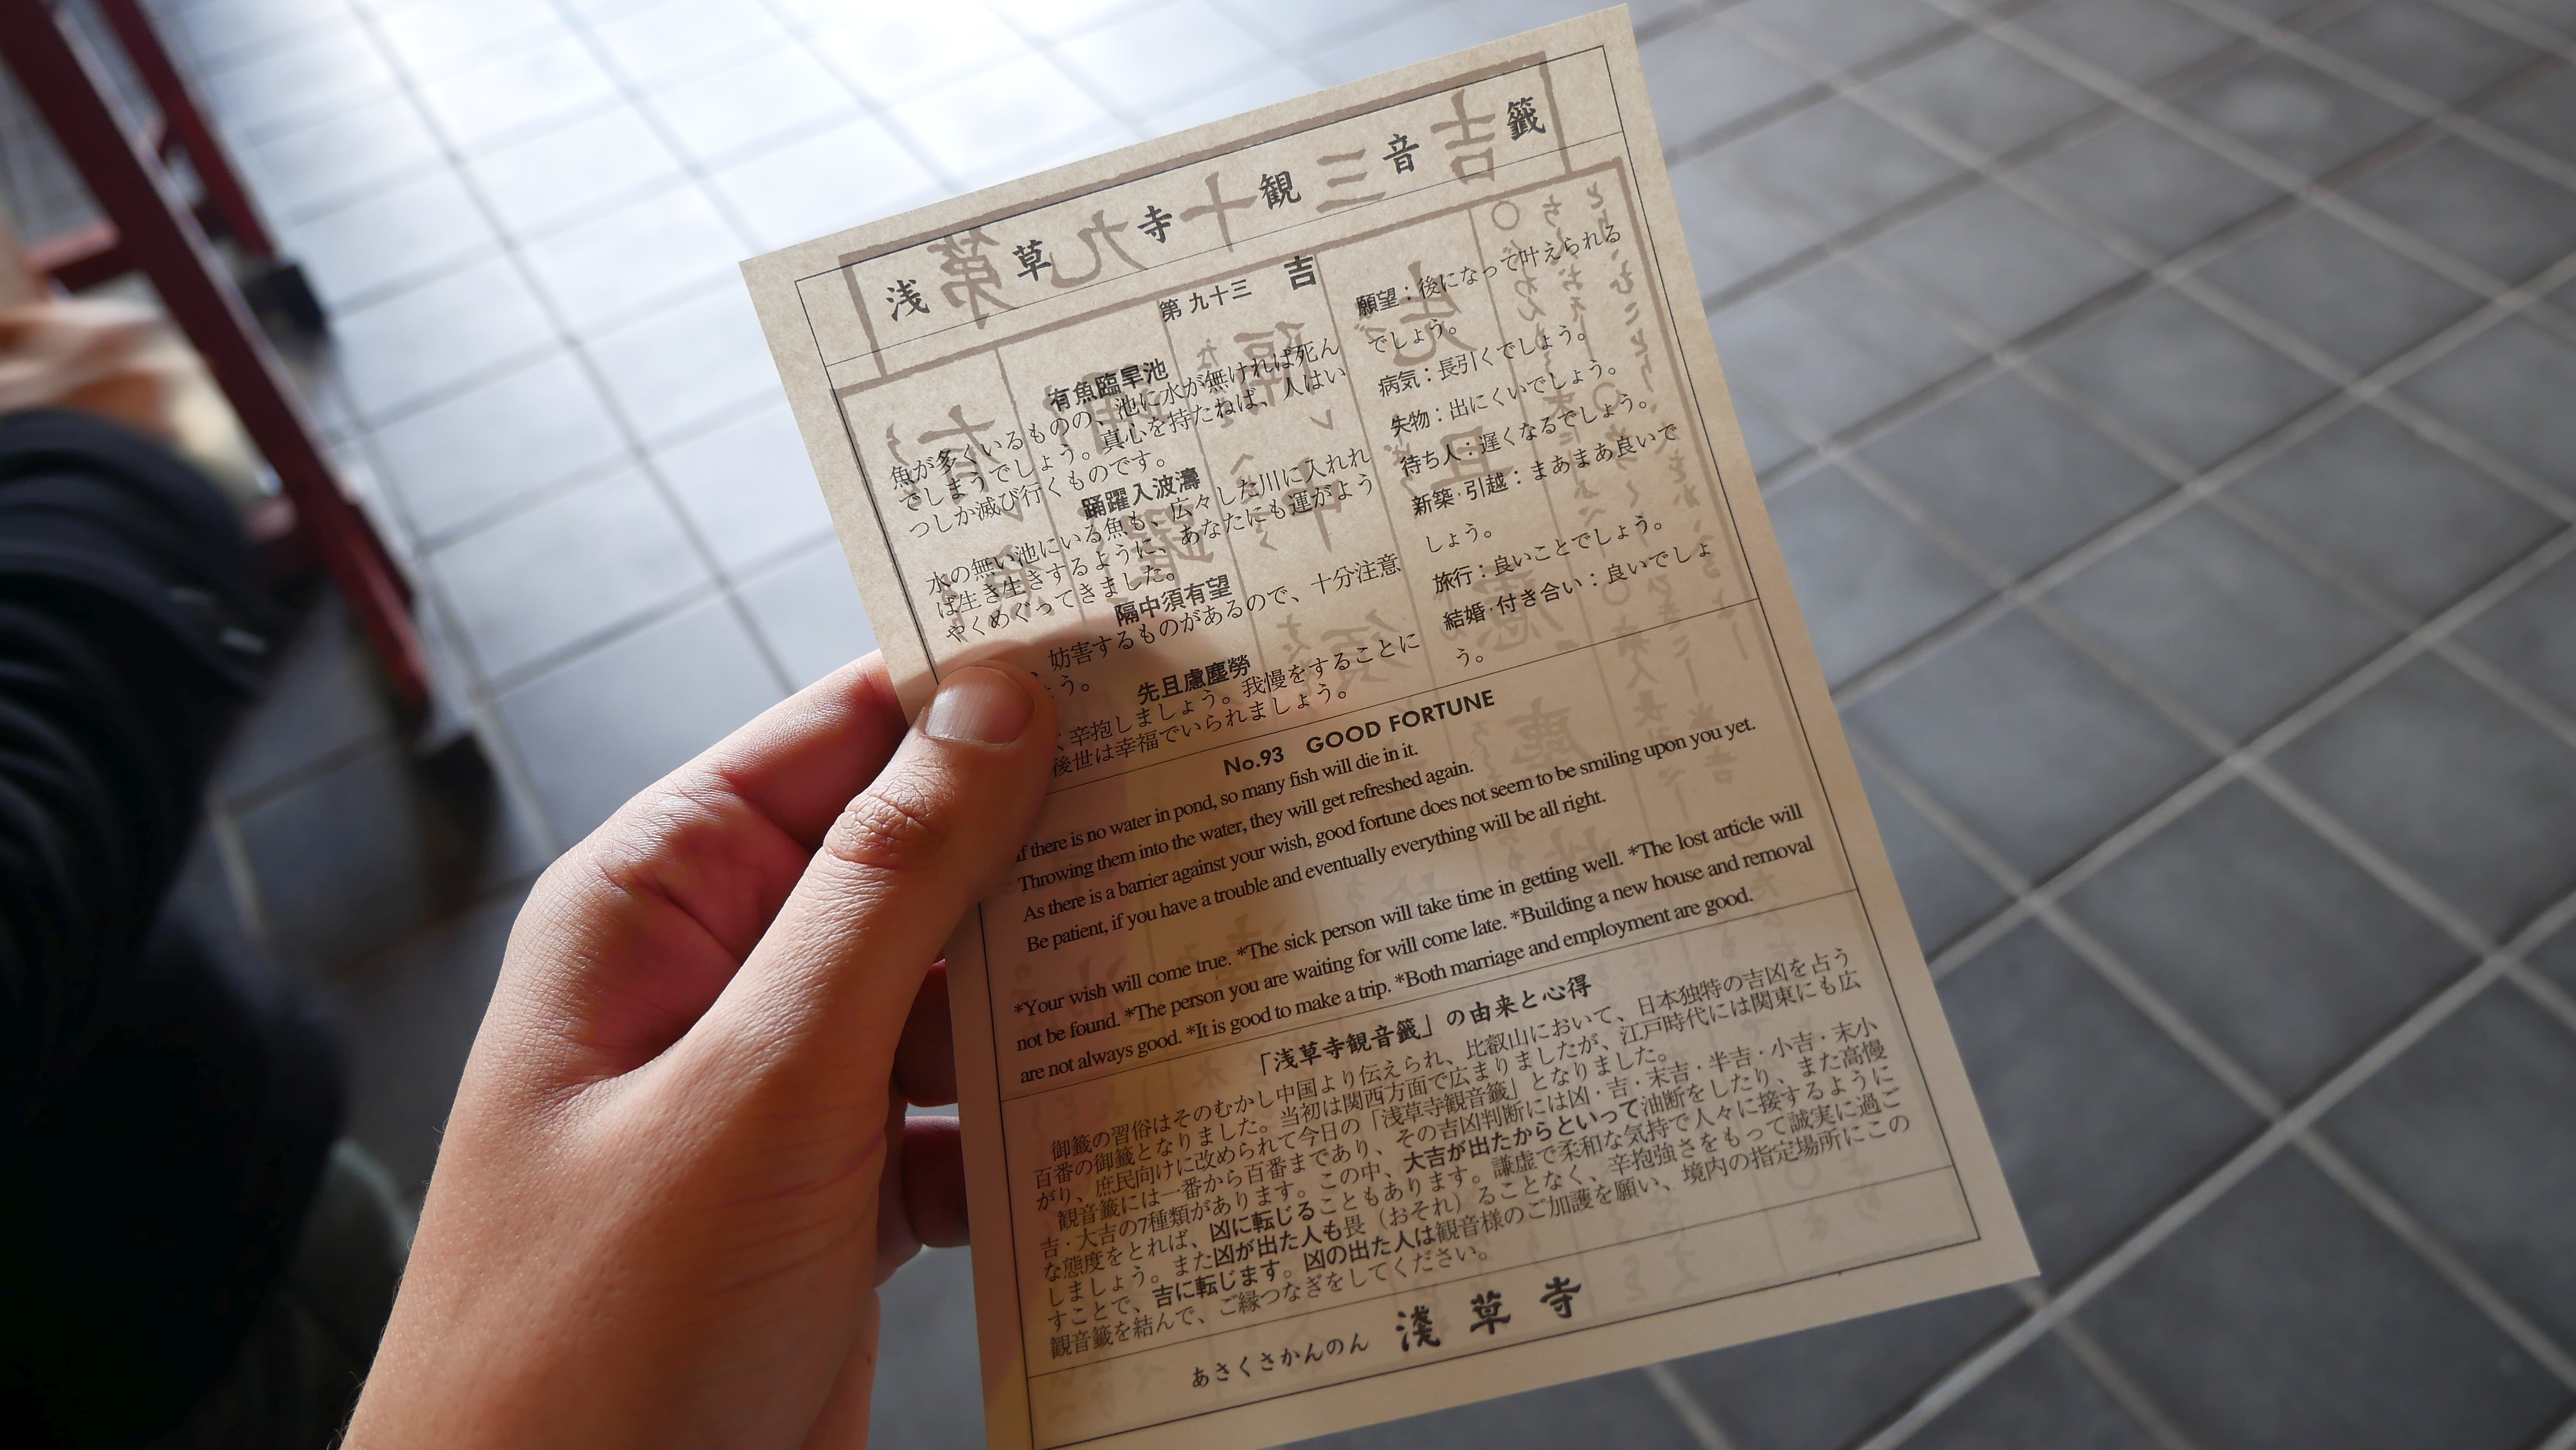 浅草寺観音籤
第九十三 吉
有魚臨旱池
魚が多くいるものの、池に水が無ければ死ん
でしまうでしょう。真心を持たねば、人はい
つしか滅び行くものです。
踊躍入波濤
水の無い池にいる魚も、広々した川に入れれ
ば生き生きするように、あなたにも運がよう
やくめぐってきました。
隔中須有望
、妨害するものがあるので、十分注意
う。
先且慮塵勞
辛抱しましょう。我慢をすることに
後世は幸福でいられましょう。
願望:後になって叶えられる
でしょう。
病気:長引くでしょう。
失物:出にくいでしょう。
待ち人:遅くなるでしょう。
新築·引越:まあまあ良いで
しょう。
旅行:良いことでしょう。
結婚·付き合い:良いでしょ
う。
No.93 GOOD FORTUNE
If there is no water in pond, so many fish will die in it.
Throwing them into the water, they will get refreshed again.
As there is a barrier against your wish, good fortune does not seem to be smiling upon you yet.
Be patient, if you have a trouble and eventually everything will be all right.
*Your wish will come true. *The sick person will take time in getting well. *The lost article will
not be found. *The person you are waiting for will come late. *Building a new house and removal
are not always good. *It is good to make a trip. *Both marriage and employment are good.
「浅草寺観音籤」の由来と心得
御籤の習俗はそのむかし中国より伝えられ、比叡山において、日本独特の吉凶を占う
百番の御籤となりました。当初は関西方面で広まりましたが、江戸時代には関東にも広
がり、庶民向けに改められて今日の「浅草寺観音籤」となりました。
観音籤には一番から百番まであり、その吉凶判断には凶·吉·末吉·半吉·小吉·末小
吉·大吉の7種類があります。この中、大吉が出たからといって油断をしたり、また高慢
な態度をとれば、凶に転じることもあります。謙虚で柔和な気持で人々に接するように
しましょう。また凶が出た人も畏(おそれ)ることなく、辛抱強さをもって誠実に過ご
すことで、吉に転じます。凶の出た人は観音様のご加護を願い、境内の指定場所にこの
観音籤を結んで、ご縁つなぎをしてください。
あさくさかんのん 淺草寺